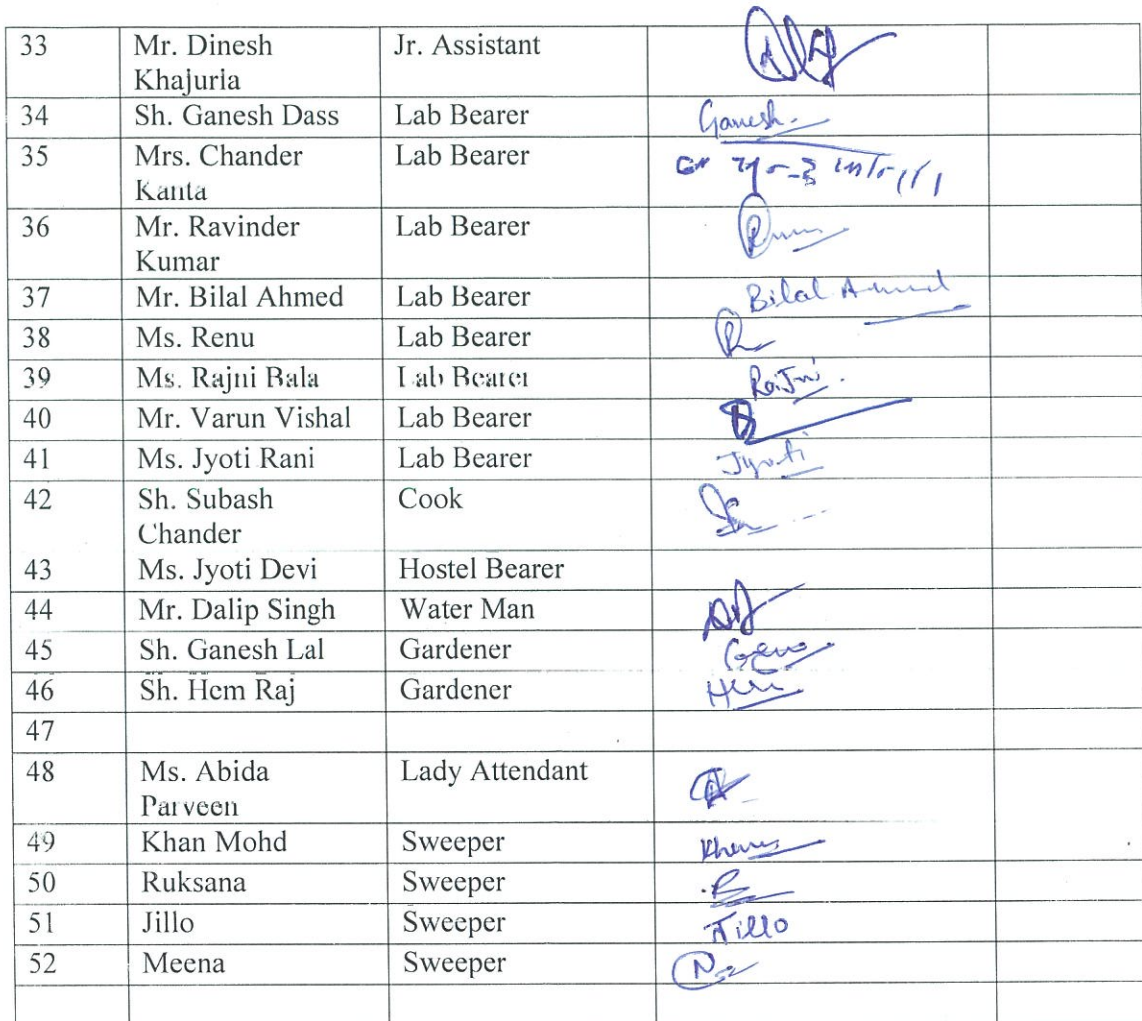 33 Mr. Dinesh Jr. Assistant
Khajuria
34 Sh. Ganesh Dass Lab Bearer Ganesh.
35 Mrs. Chander Lab Bearer
Kanta
36 Mr. Ravinder Lab Bearer
Kumar
37 Mr. Bilal Ahmed Lab Bearer Bilal Ahmed
38 Ms. Renu Lab Bearer
39 Ms. Rajni Bala Lab Bearer
40 Mr. Varun Vishal Lab Bearer
41 Ms. Jyoti Rani Lab Bearer Jyoti
42 Sh. Subash Cook
Chander
43 Ms. Jyoti Devi Hostel Bearer
44 Mr. Dalip Singh Water Man
45 Sh. Ganesh Lal Gardener
46 Sh. Hem Raj Gardener
47
48 Ms. Abida Lady Attendant
Parveen
49 Khan Mohd Sweeper
50 Ruksana Sweeper
51 Jillo Sweeper Jillo
52 Meena Sweeper